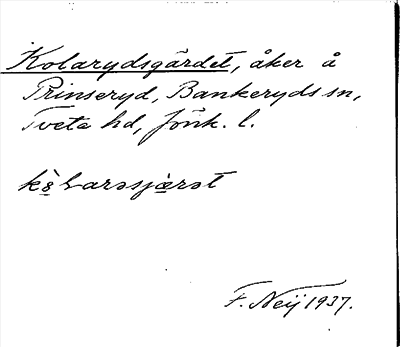 Kolarydsgärdet, åker å
Prinseryd, Bankeryds sn,
Tveta hd, Jönk. l.
F. Neij 1937.